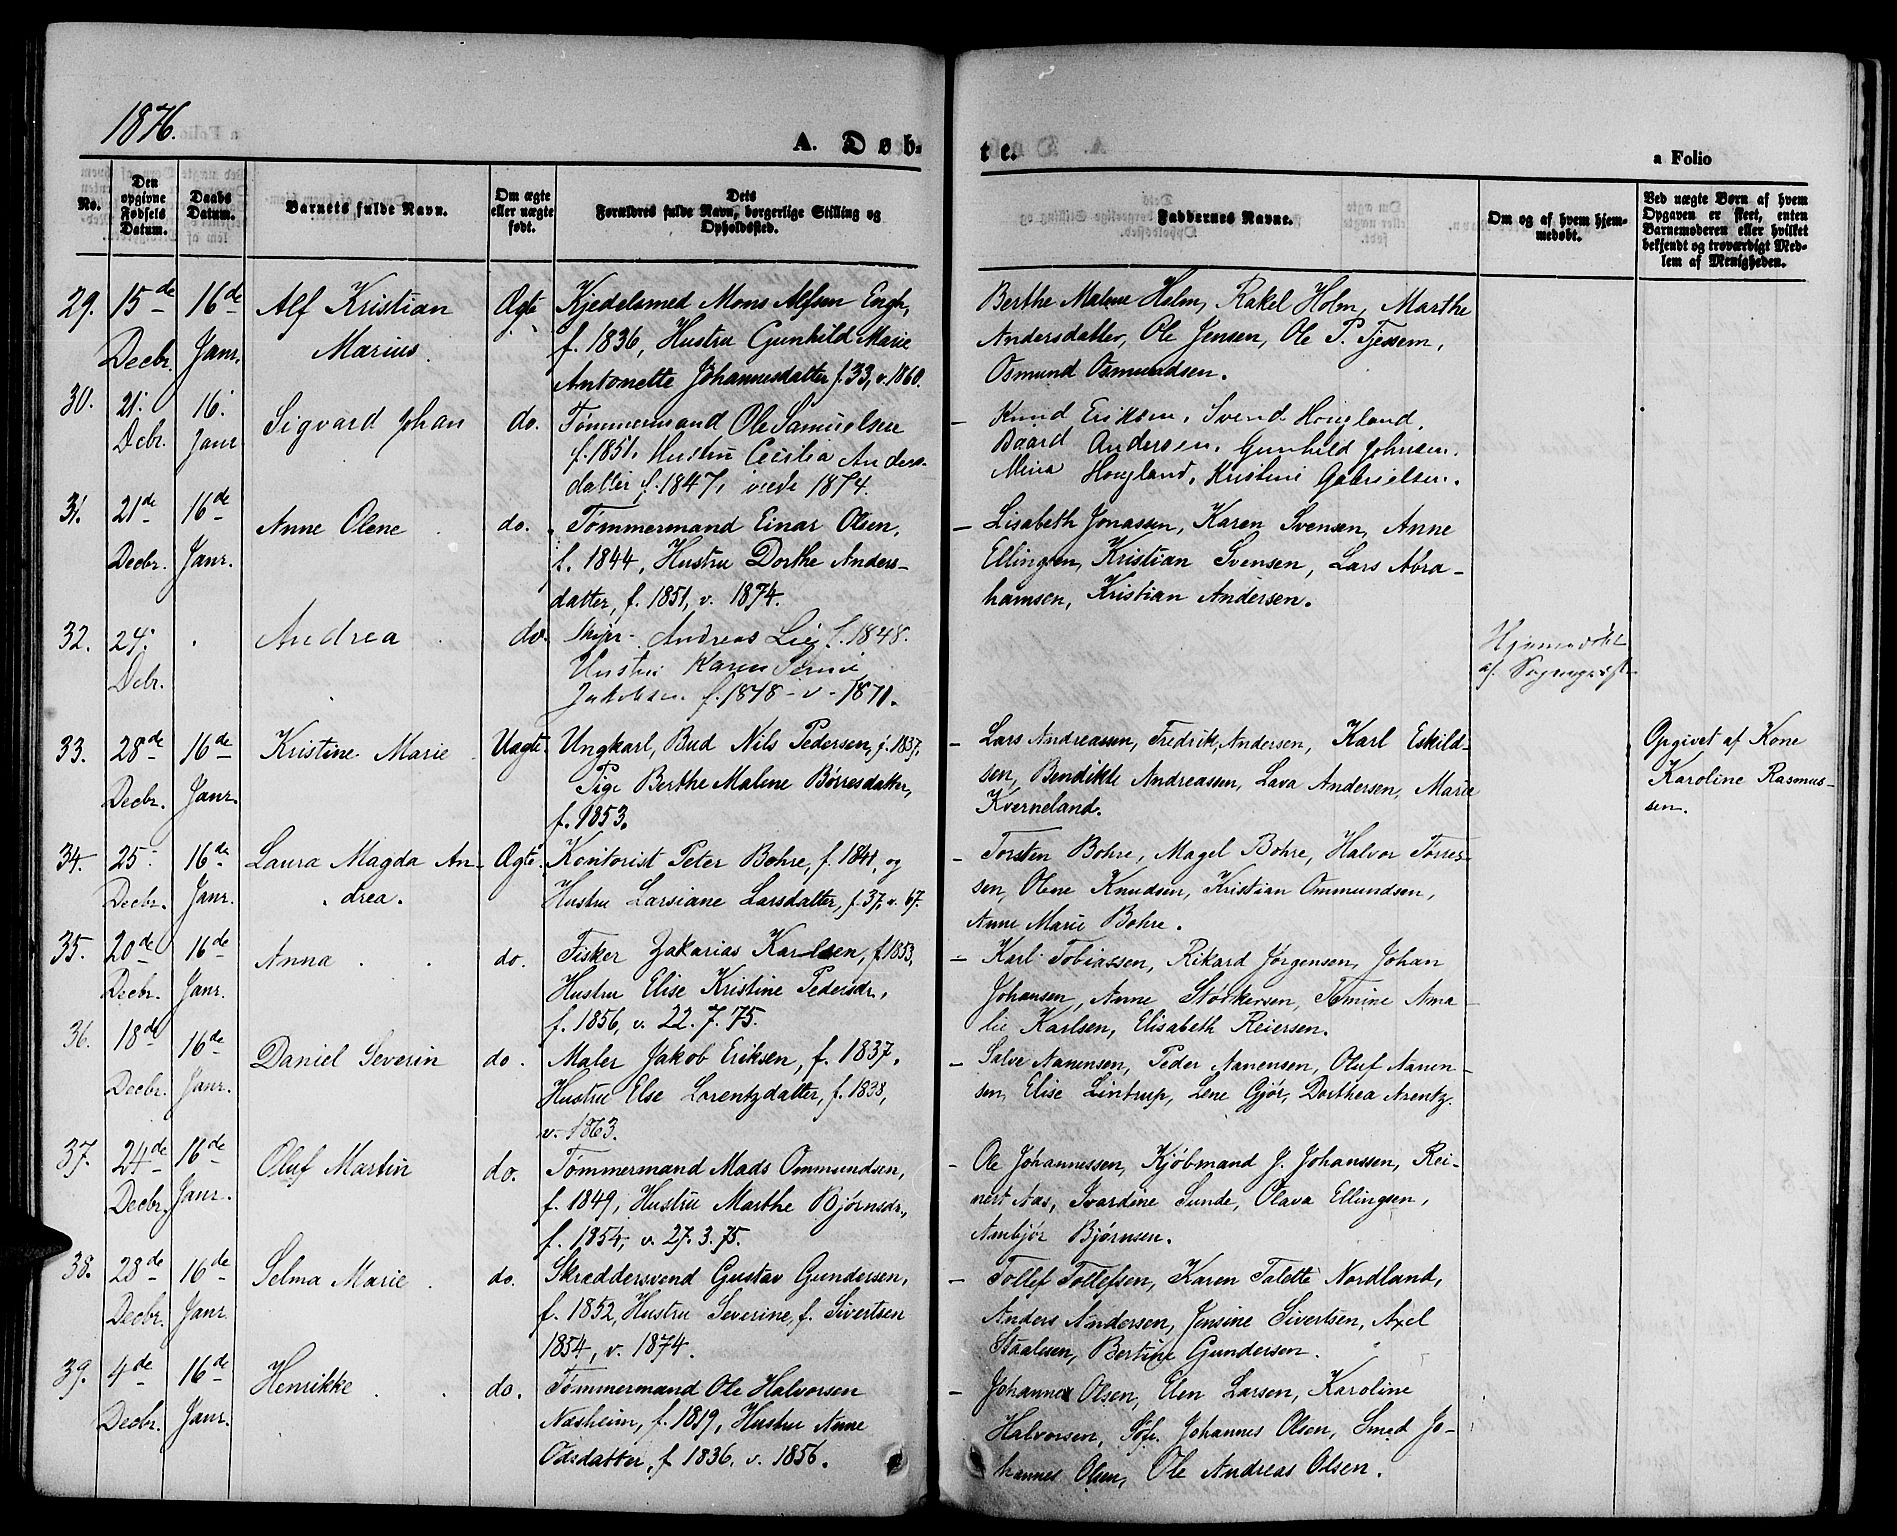 1876.
A. Døb-
te.
a Folio
No.
Den opgivne Fødsels Datum.
Daabs Datum.
Barnets fulde Navn.
Om ægte eller uægte født.
Dets Forældres fulde Navn, borgerlige Stilling og Opholdssted.
Faddernes Navne.
Om og af hvem hjem-
medøbt.
Ved uægte Børn af hvem
Opgaven er skeet, enten
Barnemoderen eller hvilket
bekjendt og troværdigt Med-
lem af Menigheden.
29. 15de Decbr. 16de Janr. Alf Kristian Marius. Ægte
Kjedelsmed Mons Alfsen Engh,
f. 1836, Hustru Gunhild Marie
Antonette Johannesdatter f. 33, v. 1860.
Berthe Malene Holm, Rakel Holm, Marthe
Andersdatter, Ole Jensen, Ole P. Tjessem,
Osmund Osmundsen.
30. 21. Debr. 16. Janr Sigvard Johan do.
Tømmermand Ole Samuelsen
f. 1851. Hustru Cecilia Anders-
datter f. 1847, viede 1874.
– Knud Eriksen, Svend Hougland,
Baard Andersen, Gunhild Johnsen,
Mina Hougland, Kristine Gabrielsen.
31. 21de Decbr. 16de Janr. Anne Olene do.
Tømmermand Einar Olsen,
f. 1844, Hustru Dorthe Anders-
datter, f. 1851, v. 1874.
– Lisabeth Jonassen, Karen Svensen, Anne
Ellingsen, Kristian Svensen, Lars Abra-
hamsen, Kristian Andersen.
32. 24. Debr. Andrea do.
Skipr. Andreas Lie, f. 1848.
Hustru Karen Serine
Jakobsen f. 1848 - v - 1871.
Hjemmedøbt
af
33. 28de Decbr. 16de Janr. Kristine Marie Uægte
Ungkarl, Bud Nils Pedersen, f. 1837,
Pige Berthe Malene Børresdatter,
f. 1853.
– Lars Andreassen, Fredrik Andersen, Karl Eskild-
sen, Bendikte Andreassen, Lava Andersen, Marie
Kverneland.
Opgivet af Kone
Karoline Rasmus-
sen.
34. 25. Decbr. 16de Janr. Laura Magda An-
drea. Ægte.
Kontorist Peter Bohre, f. 1841, og
Hustru Larsiane Larsdatter, f. 37, v. 67.
– Torsten Bohre, Magel Bohre, Halvor Tørres-
sen, Olene Knudsen, Kristian Ommundsen,
Anne Marie Bohre.
35. 20de Decbr. 16de Janr. Anna do.
Fisker Zakarias Karlsen, f. 1853,
Hustru Elise Kristine Pedersdr.,
f. 1856, v. 22. 7. 75.
– Karl Tobiassen, Rikard Jørgensen, Johan
Johansen, Anne Størkersen, Tomine Ama-
lie Karlsen, Elisabeth Reiersen.
36. 18de Decbr. 16de Janr. Daniel Severin do.
Maler Jakob Eriksen, f. 1837,
Hustru Else Lorentzdatter, f. 1838,
v. 1863.
– Salve Nanensen, Peder Nanensen, Oluf Nanen-
sen, Elise Lintrup, Lene Gjør, Dorthea Arentz.
37. 24de Decbr. 16de Janr. Oluf Martin do.
Tømmermand Mads Ommundsen,
f. 1849, Hustru Marthe Bjørnsdr.,
f. 1854, v. 27. 3. 75.
– Ole Johannessen, Kjøbmand J. Johanssen, Rei-
nert Aas, Svardine Sunde, Olava Ellingsen,
Anbjør Bjørnsen.
38. 28de Decbr. 16de Janr. Selma Marie do.
Skræddersvend Gustav Gundersen,
f. 1852, Hustru Severine, f. Sivertsen
1854, v. 1874.
– Tollef Tollefsen, Karen Talette Nordland,
Anders Andersen, Jensine Sivertsen, Axel
Staalesen, Bertine Gundersen.
39. 4de Decbr. 16de Janr. Henrikke do.
Tømmermand Ole Halvorsen
Næsheim, f. 1819, Hustru Anne
Odsdatter, f 1836. v. 1856.
– Johannes Olsen, Elen Larsen, Karoline
Halvorsen, Søfr. Johannes Olsen, Smed Jo-
hannes Olsen, Ole Andreas Olsen.